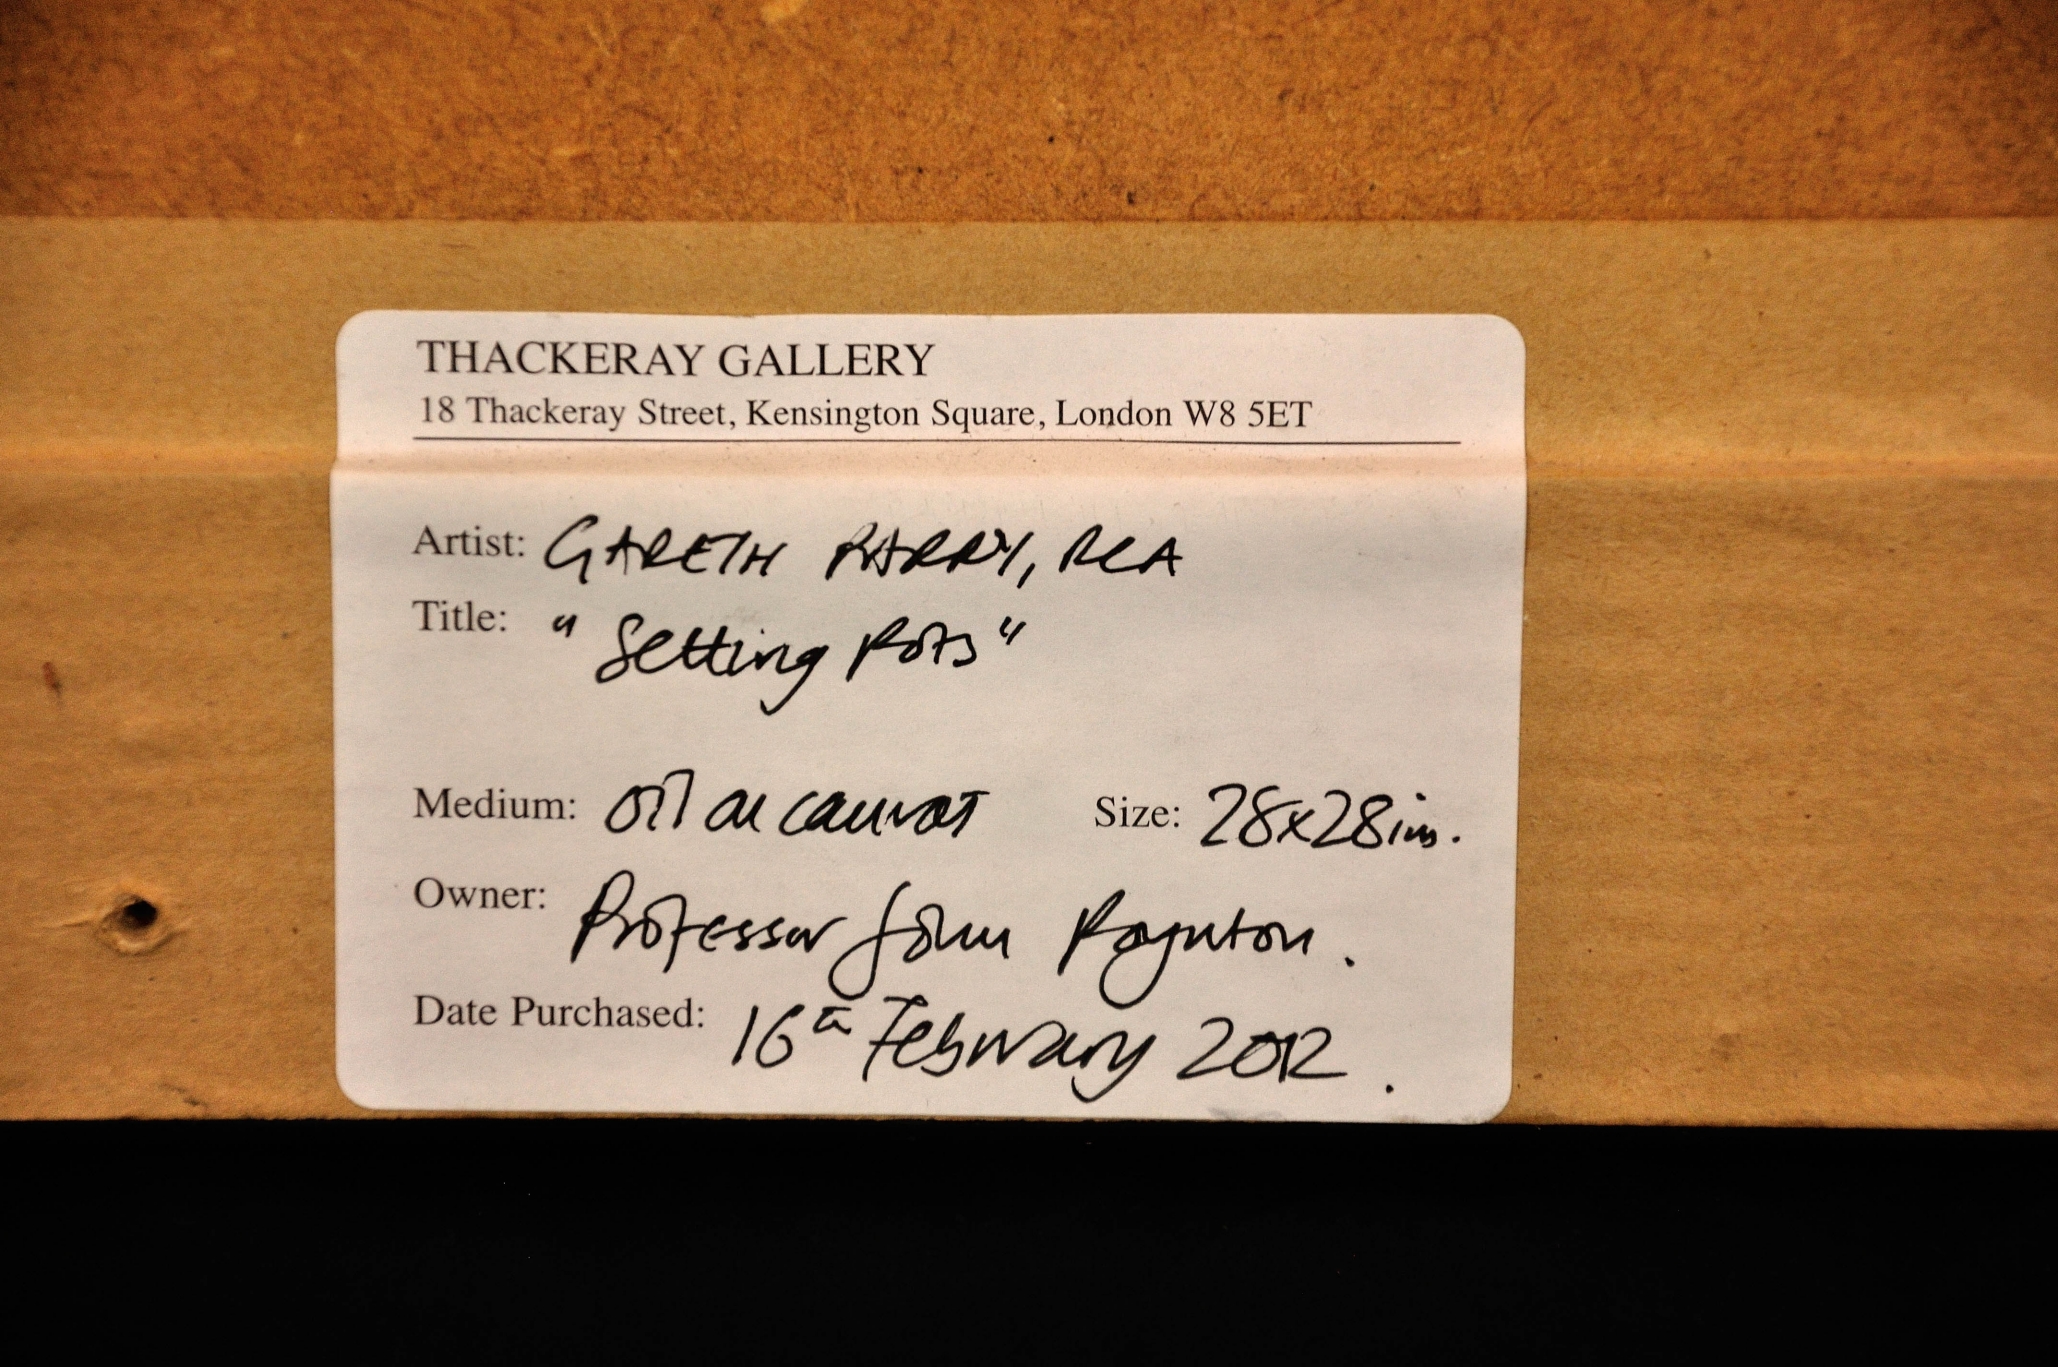 THACKERAY GALLERY
18 Thackeray Street, Kensington Square, London W8 5ET
Artist: GARETH PARRY, RCA
Title: "Setting Pots"
Medium: Oil on canvas Size: 28x28ins.
Owner: Professor John Poynton.
Date Purchased: 16th February 2012.